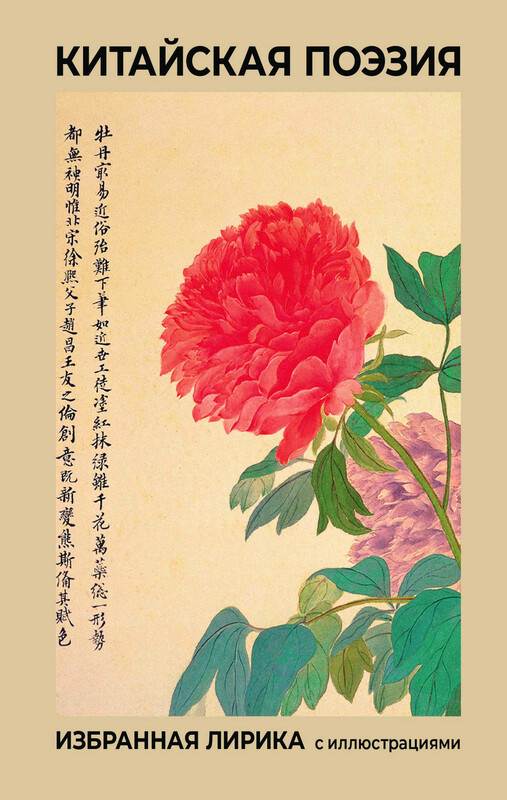 КИТАЙСКАЯ ПОЭЗИЯ
牡丹最易近俗殆難下筆如近世工徒塗紅抹綠雖千花萬蘂總一形勢
都無神明惟北宋徐熙父子趙昌王友之倫創意既新變態斯備其賦色
ИЗБРАННАЯ ЛИРИКА с иллюстрациями